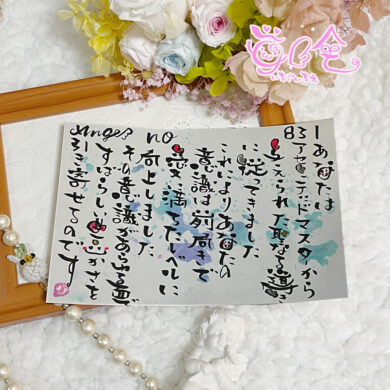 Angel no
183
あなたは
アセンテッドマスターから
与えられた聖なる導き
に従ってきました
これによりあなたの
意識は前向きで
愛に満ちたレベルに
向上しました
その意識があらゆる面で
すばらしい豊かさを
引き寄せるのです